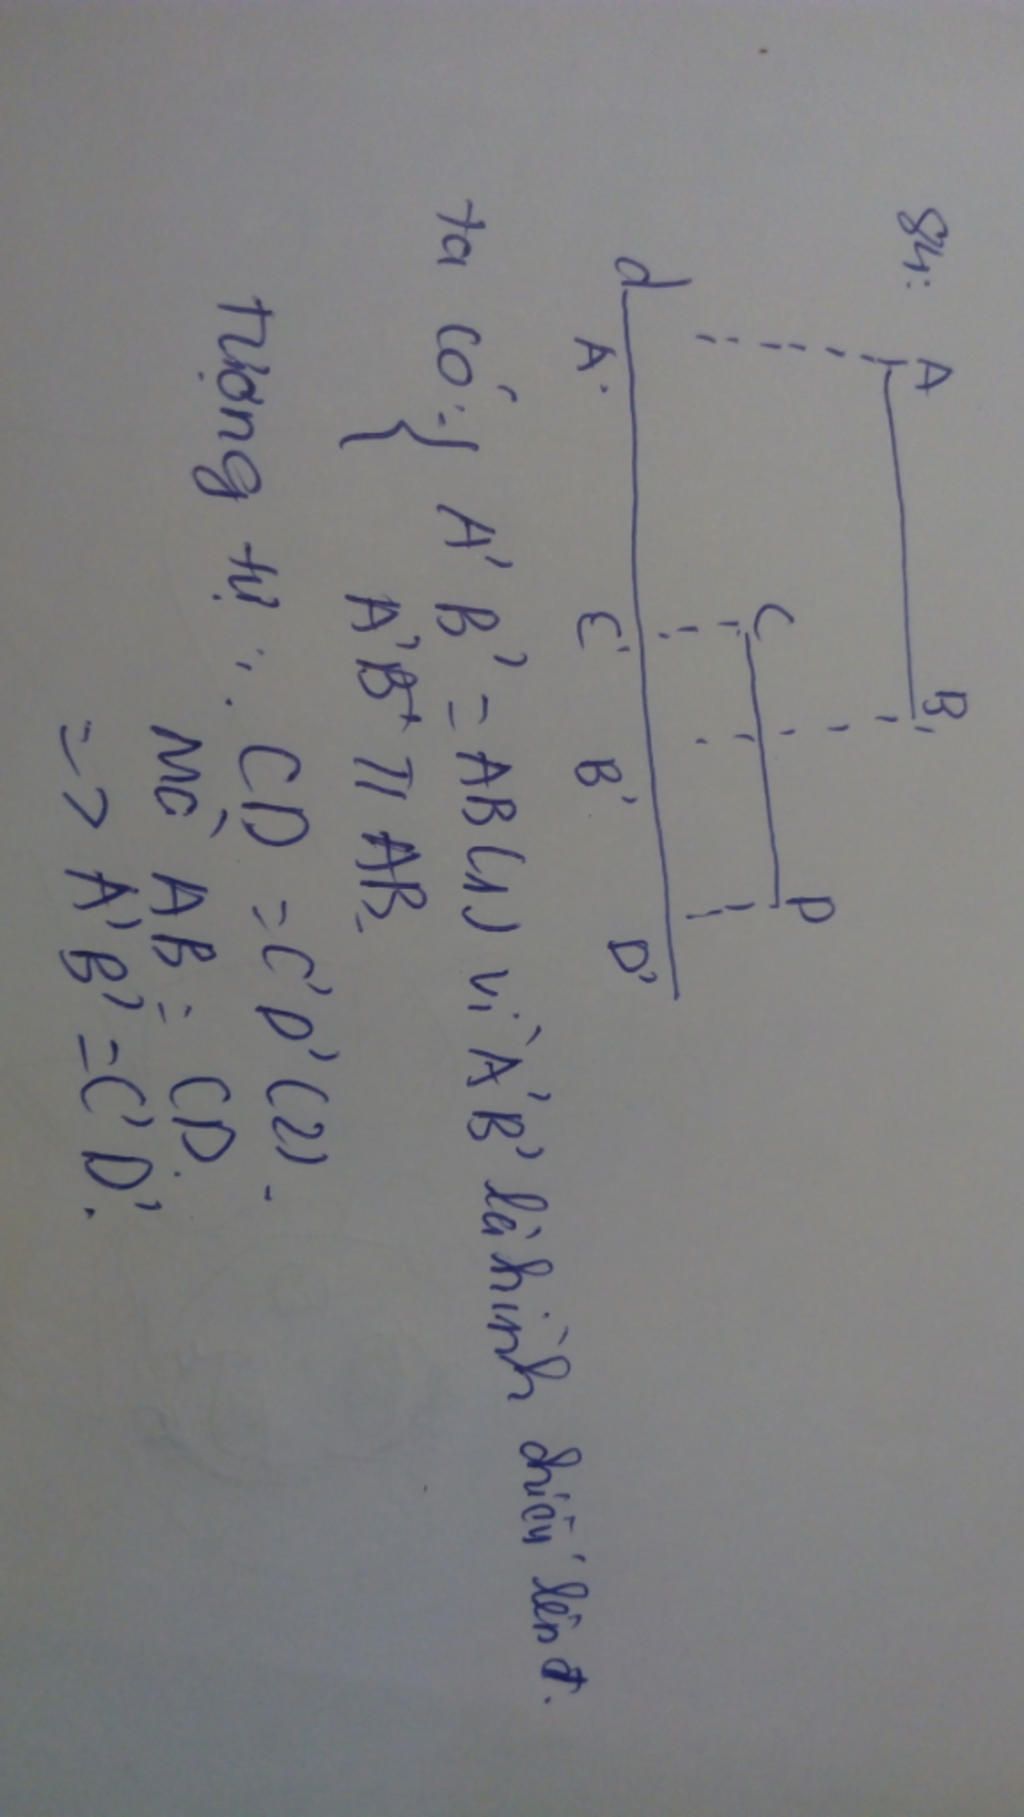 84:
A B
C D
d
A' C' B' D'
ta có: { A'B' = AB (1) vì A'B' là hình chiếu lên d.
A'B' // AB.
Tương tự: CD = C'D' (2).
Mà AB = CD.
=> A'B' = C'D'.